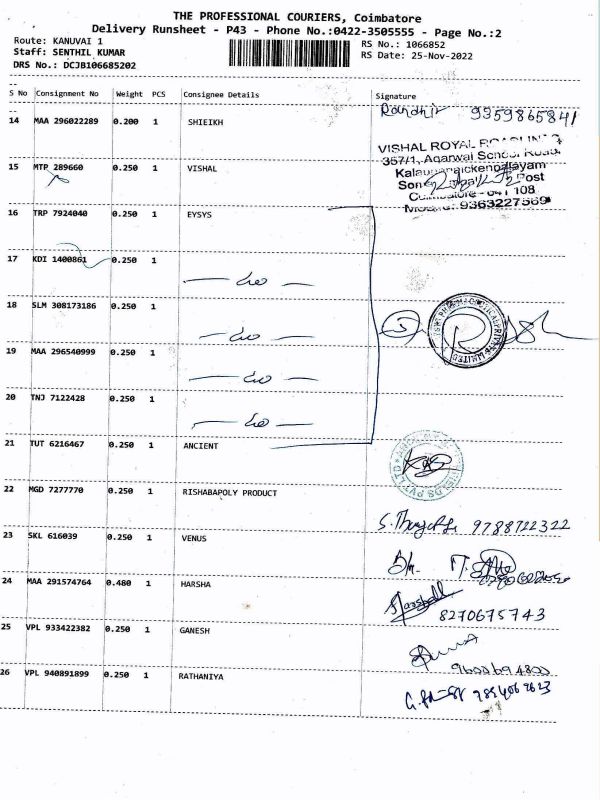 THE PROFESSIONAL COURIERS, Coimbatore
Delivery Runsheet - P43 - Phone No.:0422-3505555 - Page No.:2
Route: KANUVAI 1
Staff: SENTHIL KUMAR
DRS No.: DCJB106685202
RS No.: 1066852
RS Date: 25-Nov-2022
S No Consignment No Weight PCS Consignee Details Signature
14 MAA 296022289 0.200 1 SHIEIKH 9359865841
VISHAL ROYAL
367/1, Agarwal School Road
15 MTP 289660 0.250 1 VISHAL
Post
641 108
9363227569
16 TRP 7924040 0.250 1 EYSYS
17 KDI 1400861 0.250 1
— do —
18 SLM 308173186 0.250 1
— do —
19 MAA 296540999 0.250 1
— do —
20 TNJ 7122428 0.250 1
— do —
21 TUT 6216467 0.250 1 ANCIENT
22 MGD 7277770 0.250 1 RISHABAPOLY PRODUCT
9788722322
23 SKL 616039 0.250 1 VENUS
24 MAA 291574764 0.480 1 HARSHA
8270675743
25 VPL 933422382 0.250 1 GANESH
9600694800
26 VPL 940891899 0.250 1 RATHANIYA